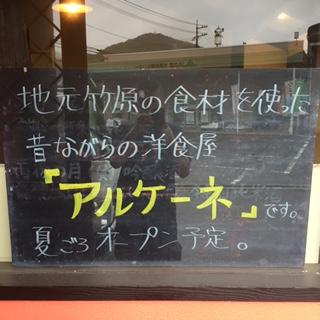 地元竹原の食材を使った
昔ながらの洋食屋
「アルケーネ」です。
夏ごろオープン予定。